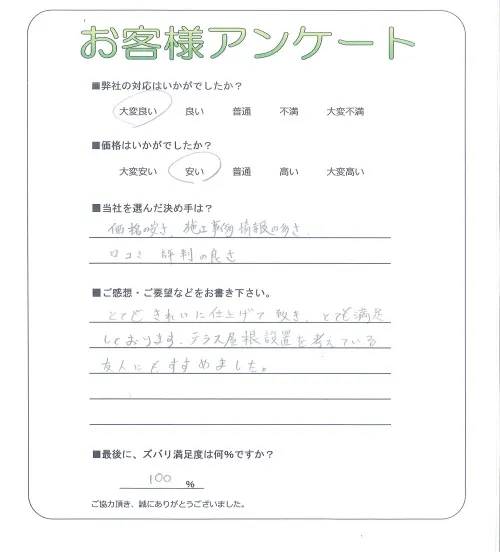 お客様アンケート
■弊社の対応はいかがでしたか？
大変良い 良い 普通 不満 大変不満
■価格はいかがでしたか？
大変安い 安い 普通 高い 大変高い
■当社を選んだ決め手は？
価格の安さ、施工事例情報の多さ、
口コミ 評判の良さ
■ご感想・ご要望などをお書き下さい。
とてもきれいに仕上げて頂き、とても満足
しております。テラス屋根設置を考えている
友人にもすすめました。
■最後に、ズバリ満足度は何％ですか？
100 %
ご協力頂き、誠にありがとうございました。